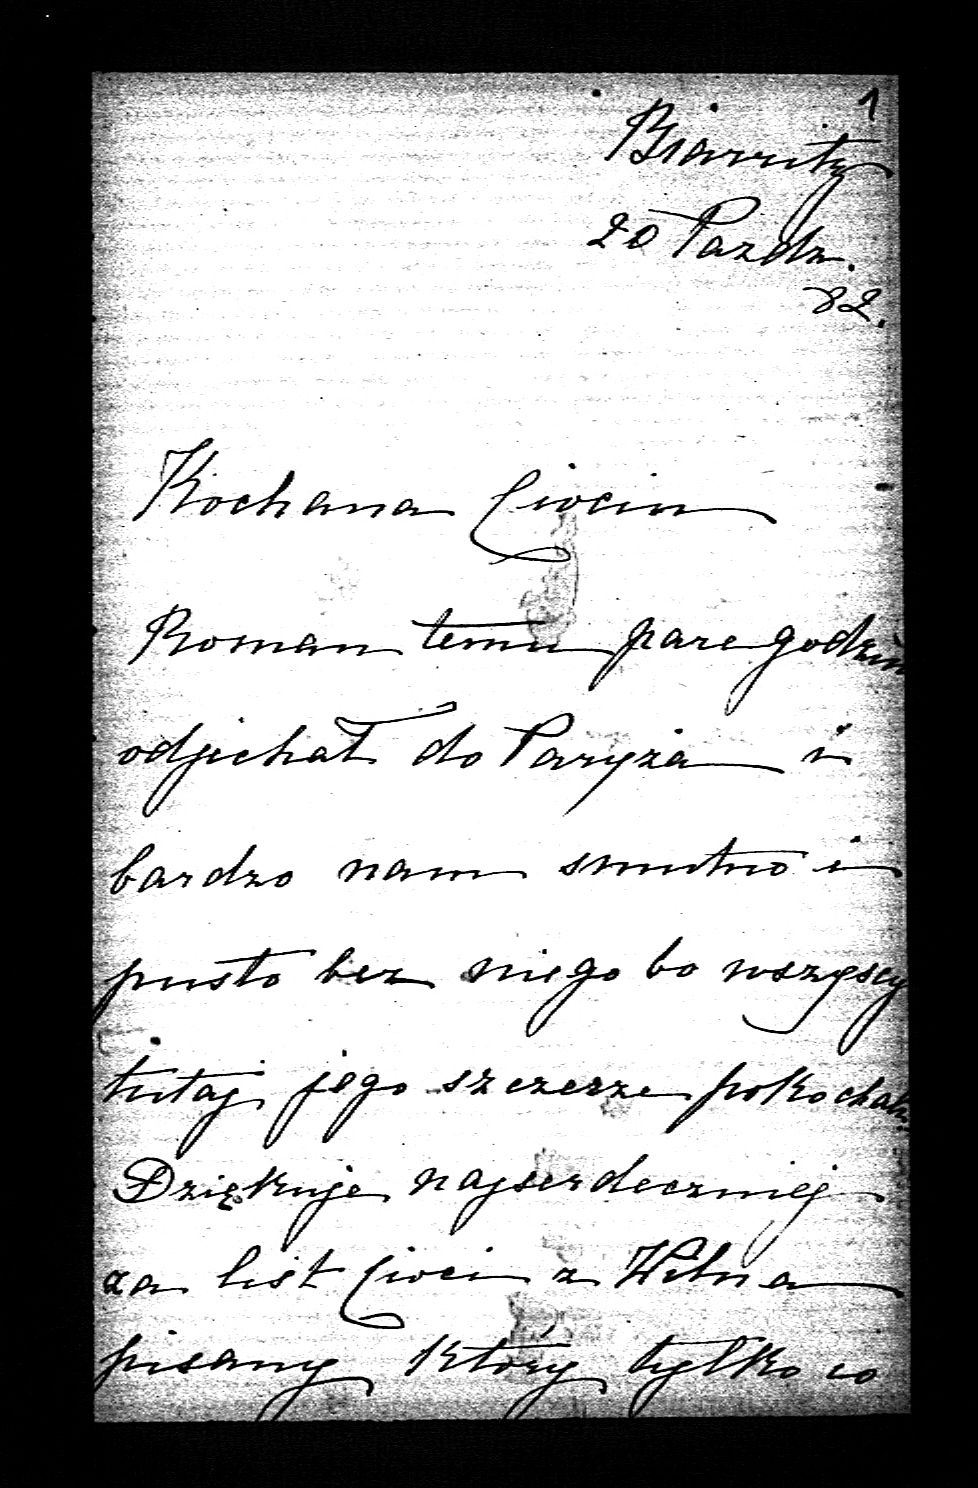 1
Biarritz
20 Pazdz.
82.
Kochana Ciociu
Roman temu pare godzin
odjechał do Paryża i
bardzo nam smutno i
pusto bez niego bo wszyscy
tutaj jego szczerze pokochali.
Dziękuje najserdeczniej
za list Cioci z Wilna
pisany który tylko co